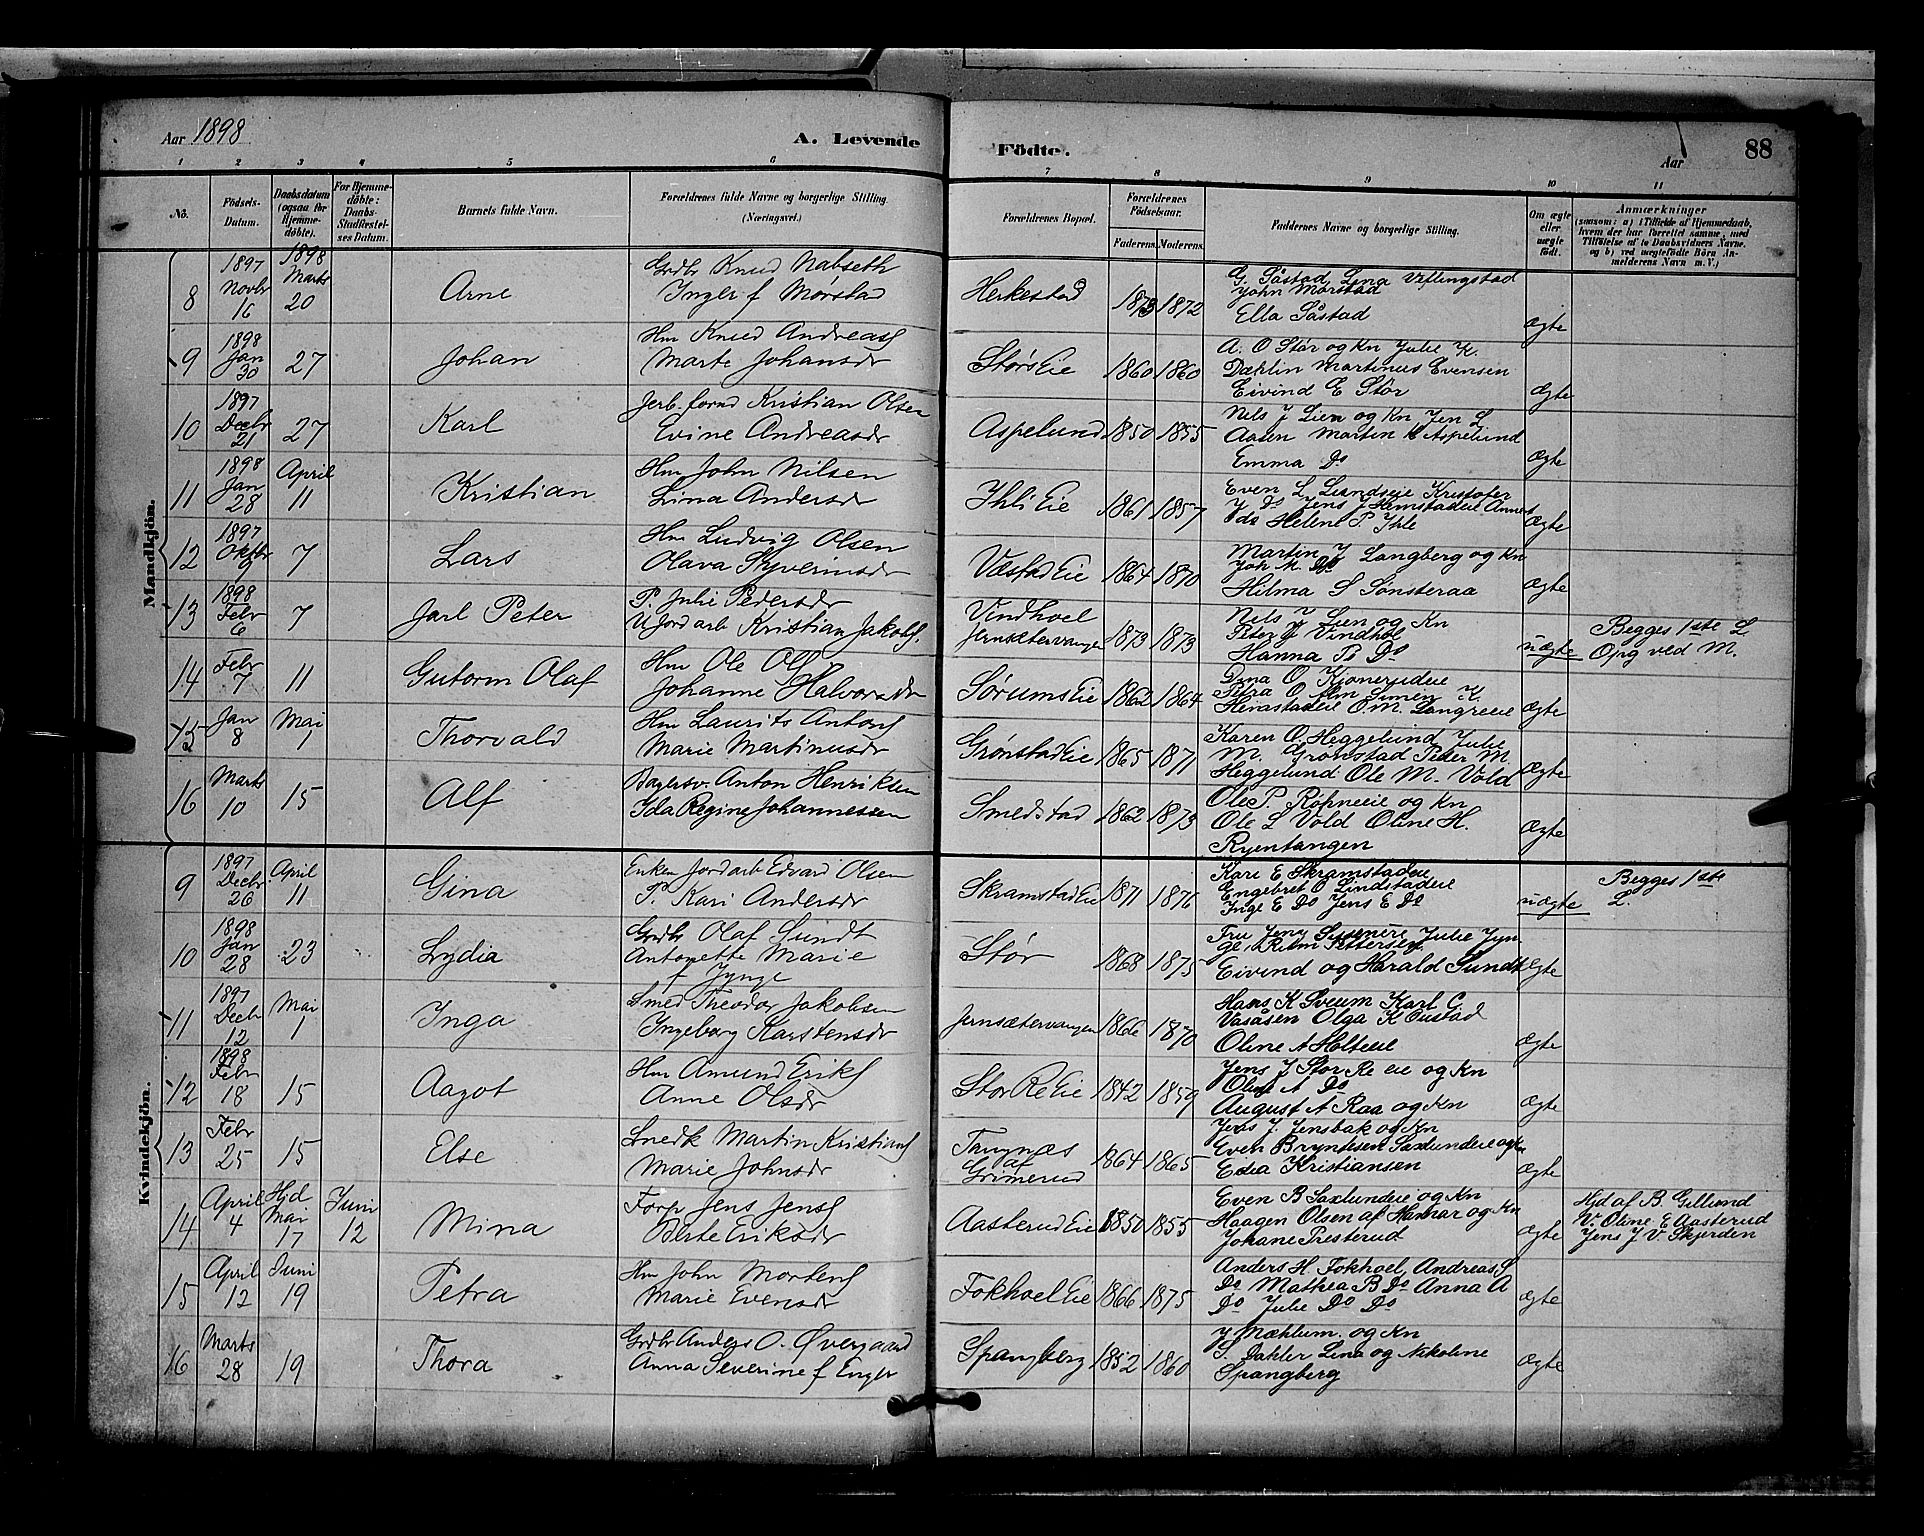 Aar 1898
A. Levende
Födte.
Aar
88
1 2 3 4 5 6 7 8 9 10 11
No.
Födsels-
Datum.
Daabsdatum
(ogsaa for
Hjemme-
döbte).
For Hjemme-
döbte:
Daabs-
Stadfæstel-
ses Datum.
Barnets fulde Navn.
Forældrenes fulde Navne og borgerlige Stilling
(Næringsvei.)
Forældrenes Bopæl.
Forældrenes
Födselsaar.
Faderens. Moderens.
Faddernes Navne og borgerlige Stilling.
Om ægte
eller
uægte
födt.
Anmærkninger
(saasom: a) i Tilfælde af Hjemmedaab,
hvem der har forrettet samme, med
Tilföielse af to Daabsvidners Navne,
og b) ved uægtefödte Börn An-
melderens Navn m. V.)
Mandkjön.
8
1897
Novbr
16
1898
Marts
20
Arne
Grdbr Knud Nabseth
Inger f Mørstad
Herkestad
1873 1872
G. Såstad Lina Veflingstad
John Mørstad
Ella Såstad
ægte
9
1898
Jan
30
27
Johan
Hm Knud Andreas
Marte Johansdr
StørsEie
1860 1860
A. O Stør og Kn Julie K.
Dæhlin Martinus Evensen
Eivind E Stør
Ægte
10
1897
Decbr
21
27
Karl
Kristian Olsen
Evine Andreasdr
Aspelund
1850 1855
Nels J Lien og Kn Jen L
Aasen Martin K Aspelund
Emma Do
Ægte
11
1898
Jan
28
April
11
Kristian
Hm John Nilsen
Lina Andersdr
IhliEie
1861 1857
Even L Lundseie Kristofer
J Do Jens J Hemstadeie Anne
Helene P Ihle
Ægte
12
1897
Oktbr
7
Lars
Hm Ludvig Olsen
Olava Syversdr
VæstadEie
1864 1870
Martin J Langberg og Kn
Joh M Do
Hilma S Sønsteraa
Ægte
13
1898
Febr
6
7
Jarl Peter
P. Julie Pedersdr
U Jordarb Kristian Jakobs.
Vindhoel
Jernsætervangen
1873 1873
Nels J Lien og Kn
Peter J Vindhol
Hanna B Do
uægte
Begges 1ste L
Opg ved M.
14
Febr
7
11
Gutorm Olaf
Hm Ole Ols
Johanne Halvorsdr
SørumsEie
1862 1864
Dina O Kjonerudeie
Petra O Alm Simen K
O. M. Langreeie
Ægte
15
Jan
8
Mai
1
Thorvald
Hm Laurits Antons
Marie Martinusdr
GrønstadEie
1865 1871
Karen O. Heggelund Julie
M. Grønstad Peter M
Heggelund Ole M. Vold
Ægte
16
Marts
10
15
Alf
Bagersv. Anton Henriksen
Ida Regine Johannessen
Smedstad
1862 1873
Ole P. Røhneeie og Kn
Ole L Vold Oline H.
Ryentangen
Ægte
Kvindekjön.
9
1897
Decbr
26
April
11
Gina
Enkem Jordarb Edvard Olsen
P. Kari Andersdr
SkramstadEie
1871 1876
Kari E Skramstadeie
Engebret O Lindstadeie
Inge E Do Jens E Do
uægte
Begges 1ste
L.
10
1898
Jan
28
23
Lydia
Grdbr Olaf Sundt
Antonette Marie
f Jynge
Stør
1868 1875
Pettersen
Eivind og Harald Sundt
Ægte
11
1897
Decbr
12
Mai
1
Inga
Smed Theodor Jakobsen
Ingeborg Karstensdr
Jernsætervangen
1866 1870
Hans K Sveum Karl C
Vasåsen Olga K Oustad
Oline A Holteeie
Ægte
12
1898
Febr
18
15
Aagot
Hm Amund Eriks
Anne Olsdr
Stor ReEie
1842 1859
Jens J Stor Re eie og Kn
Oluf A Do
August A Raa og Kn
Ægte
13
Febr
25
15
Else
Snedk Martin Kristians
Marie Johnsdr
Tangnæs
af
Grimerud
1864 1865
Jens J. Jensbak og Kn
Even Bryntesen Saxlundeie og Kn
Edea Kristiansen
Ægte
14
April
4
Hjd
Mai
17
Juni
12
Mina
Forp Jens Jens
Berte Eriksdr
AasterudEie
1850 1855
Even B Saxlundeie og Kn
Haagen Olsen af Hamar og Kn
Johane Fresterud
ægte
Hjd af B. Gillund
V. Oline E Aasterud
Jens J V Skjerden
15
April
12
Juni
19
Petra
Hm John Mortens
Marie Evensdr
FokhoelEie
1866 1875
Anders H Fokhoel, Andreas S
Do Mathea B Do Anna A
Do Julie Do Do
ægte
16
Marts
28
19
Thora
Grdbr Anders O. Øvergaard
Anna Severine f Enger
Spangberg
1852 1860
J Mæhlum. og Kn
S. Dahler Lina og Nikoline
Spangberg
Ægte